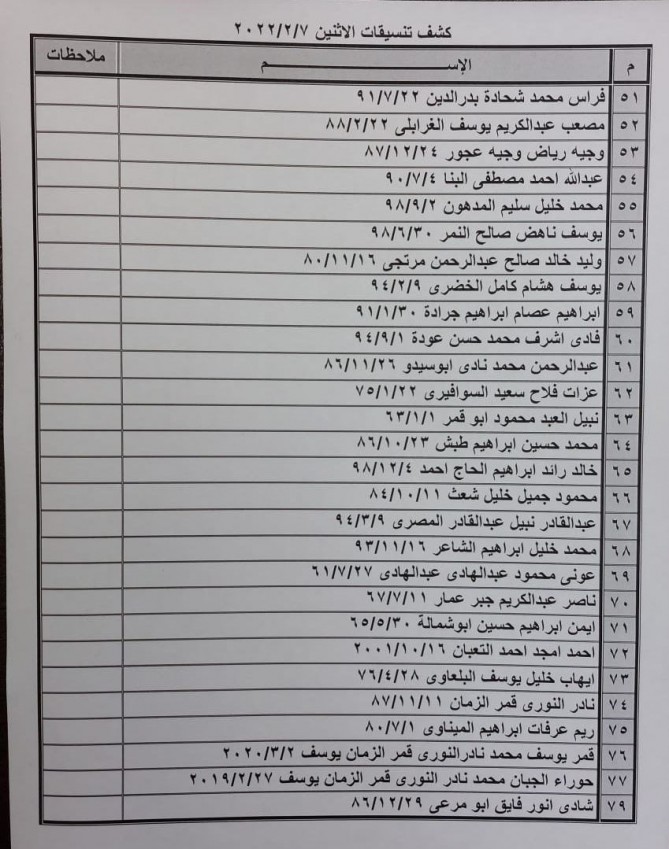 كشف تنسيقات الاثنين ٢٠٢٢/٢/٧
م الإســـــــــم ملاحظات
٥١ فراس محمد شحادة بدرالدين ٩١/٧/٢٢
٥٢ مصعب عبدالكريم يوسف الغرابلى ٨٨/٢/٢٢
٥٣ وجيه رياض وجيه عجور ٨٧/١٢/٢٤
٥٤ عبدالله احمد مصطفى البنا ٩٠/٧/٤
٥٥ محمد خليل سليم المدهون ٩٨/٩/٢
٥٦ يوسف ناهض صالح النمر ٩٨/٦/٣٠
٥٧ وليد خالد صالح عبدالرحمن مرتجى ٨٠/١١/١٦
٥٨ يوسف هشام كامل الخضرى ٩٤/٢/٩
٥٩ ابراهيم عصام ابراهيم جرادة ٩١/١/٣٠
٦٠ فادى اشرف محمد حسن عودة ٩٤/٩/١
٦١ عبدالرحمن محمد نادى ابوسيدو ٨٦/١١/٢٦
٦٢ عزات فلاح سعيد السوافيرى ٧٥/١/٢٢
٦٣ نبيل العبد محمود ابو قمر ٦٣/١/١
٦٤ محمد حسين ابراهيم طبش ٨٦/١٠/٢٣
٦٥ خالد رائد ابراهيم الحاج احمد ٩٨/١٢/٤
٦٦ محمود جميل خليل شعث ٨٤/١٠/١١
٦٧ عبدالقادر نبيل عبدالقادر المصرى ٩٤/٣/٩
٦٨ محمد خليل ابراهيم الشاعر ٩٣/١١/١٦
٦٩ عونى محمود عبدالهادى عبدالهادى ٦١/٧/٢٧
٧٠ ناصر عبدالكريم جبر عمار ٦٧/٧/١١
٧١ ايمن ابراهيم حسين ابوشمالة ٦٥/٥/٣٠
٧٢ احمد امجد احمد التعبان ٢٠٠١/١٠/١٦
٧٣ ايهاب خليل يوسف البلعاوى ٧٦/٤/٢٨
٧٤ نادر النورى قمر الزمان ٨٧/١١/١١
٧٥ ريم عرفات ابراهيم الميناوى ٨٠/٧/١
٧٦ قمر يوسف محمد نادرالنورى قمر الزمان يوسف ٢٠٢٠/٣/٢
٧٧ حوراء الجبان محمد نادر النورى قمر الزمان يوسف ٢٠١٩/٢/٢٧
٧٩ شادى انور فايق ابو مرعى ٨٦/١٢/٢٩